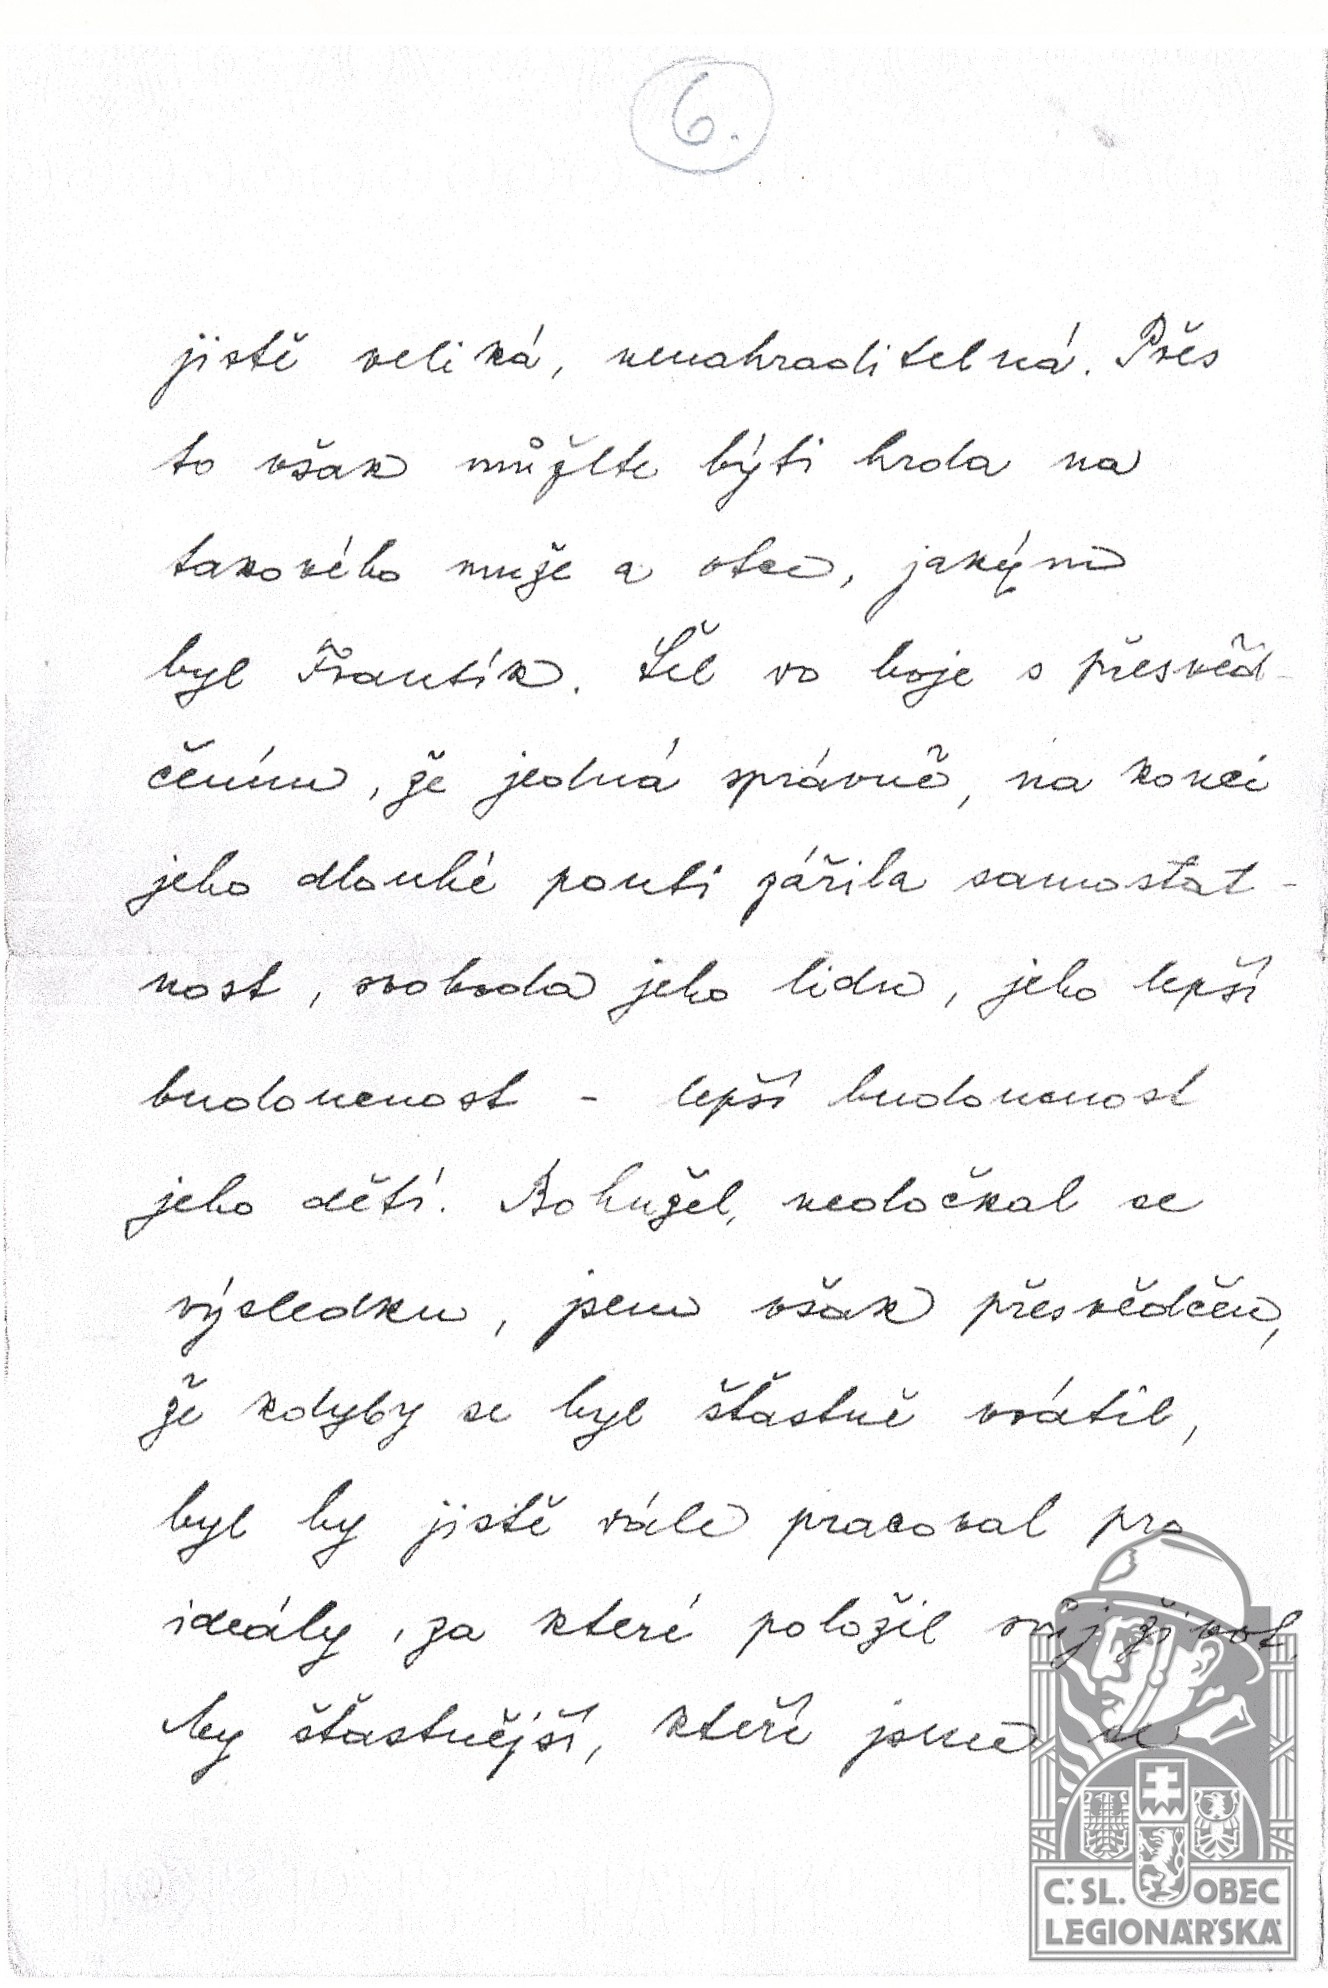 6.
jistě veliká, nenahraditelná. Přes
to však můžete býti hrda na
takového muže a otce, jakým
byl Frantík. Šel do boje s přesvěd-
čením, že jedná správně, na konci
jeho dlouhé pouti zářila samostat-
nost, svoboda jeho lidu, jeho lepší
budoucnost - lepší budoucnost
jeho dětí. Bohužel, nedočkal se
výsledku, jsem však přesvědčen,
že kdyby se byl šťastně vrátil,
byl by jistě dále pracoval pro
ideály, za které položil svůj život.
My šťastnější, kteří jsme se
Č.SL. OBEC
LEGIONÁŘSKÁ